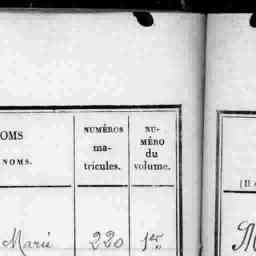 OMS
NOMS.
NUMÉROS
ma-
tricules.
NU-
MÉRO
du
volume.
Marie 220 1er